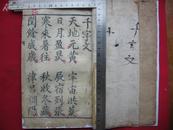 千字文
天地元黄 宇宙洪荒
日月盈昃 辰宿列張
寒來暑往 秋收冬藏
閏餘成歲 律呂調陽
千字文